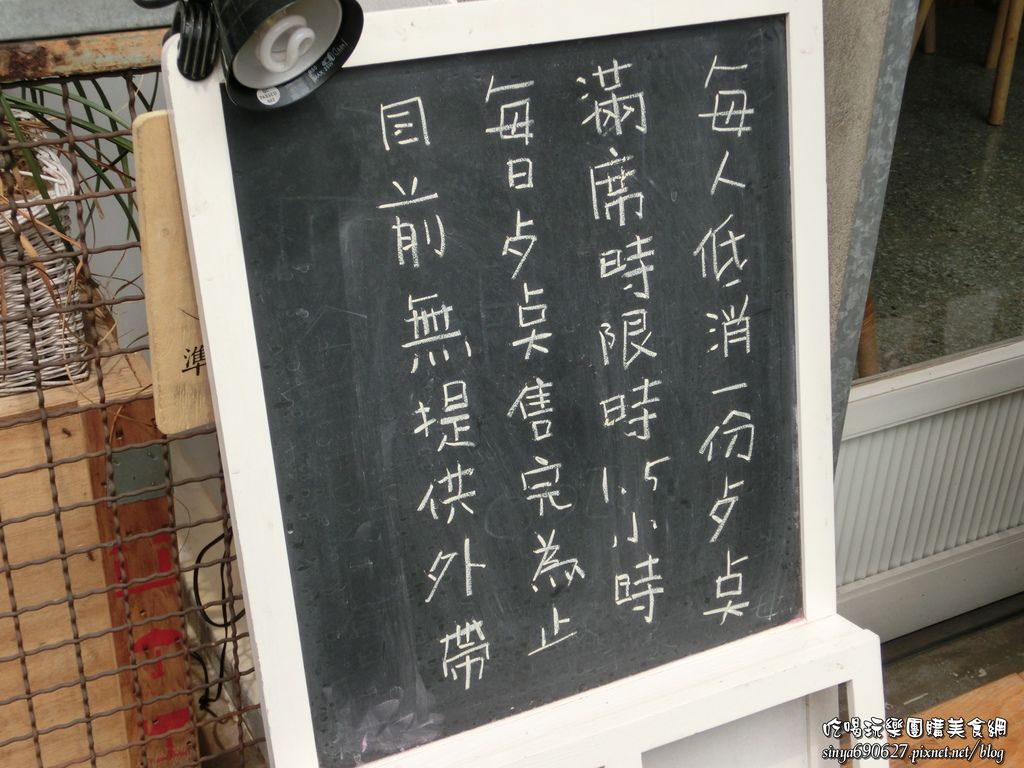 每人低消一份歺奌
滿席時限時1.5小時
每日歺奌售完為止
目前無提供外帶
準
吃喝玩樂團購美食網
sinya690627.pixnet.net/blog